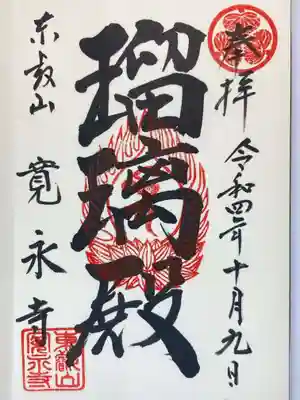 奉拝
令和四年十月九日
瑠璃殿
東叡山
寛永寺
東叡山
寛永寺